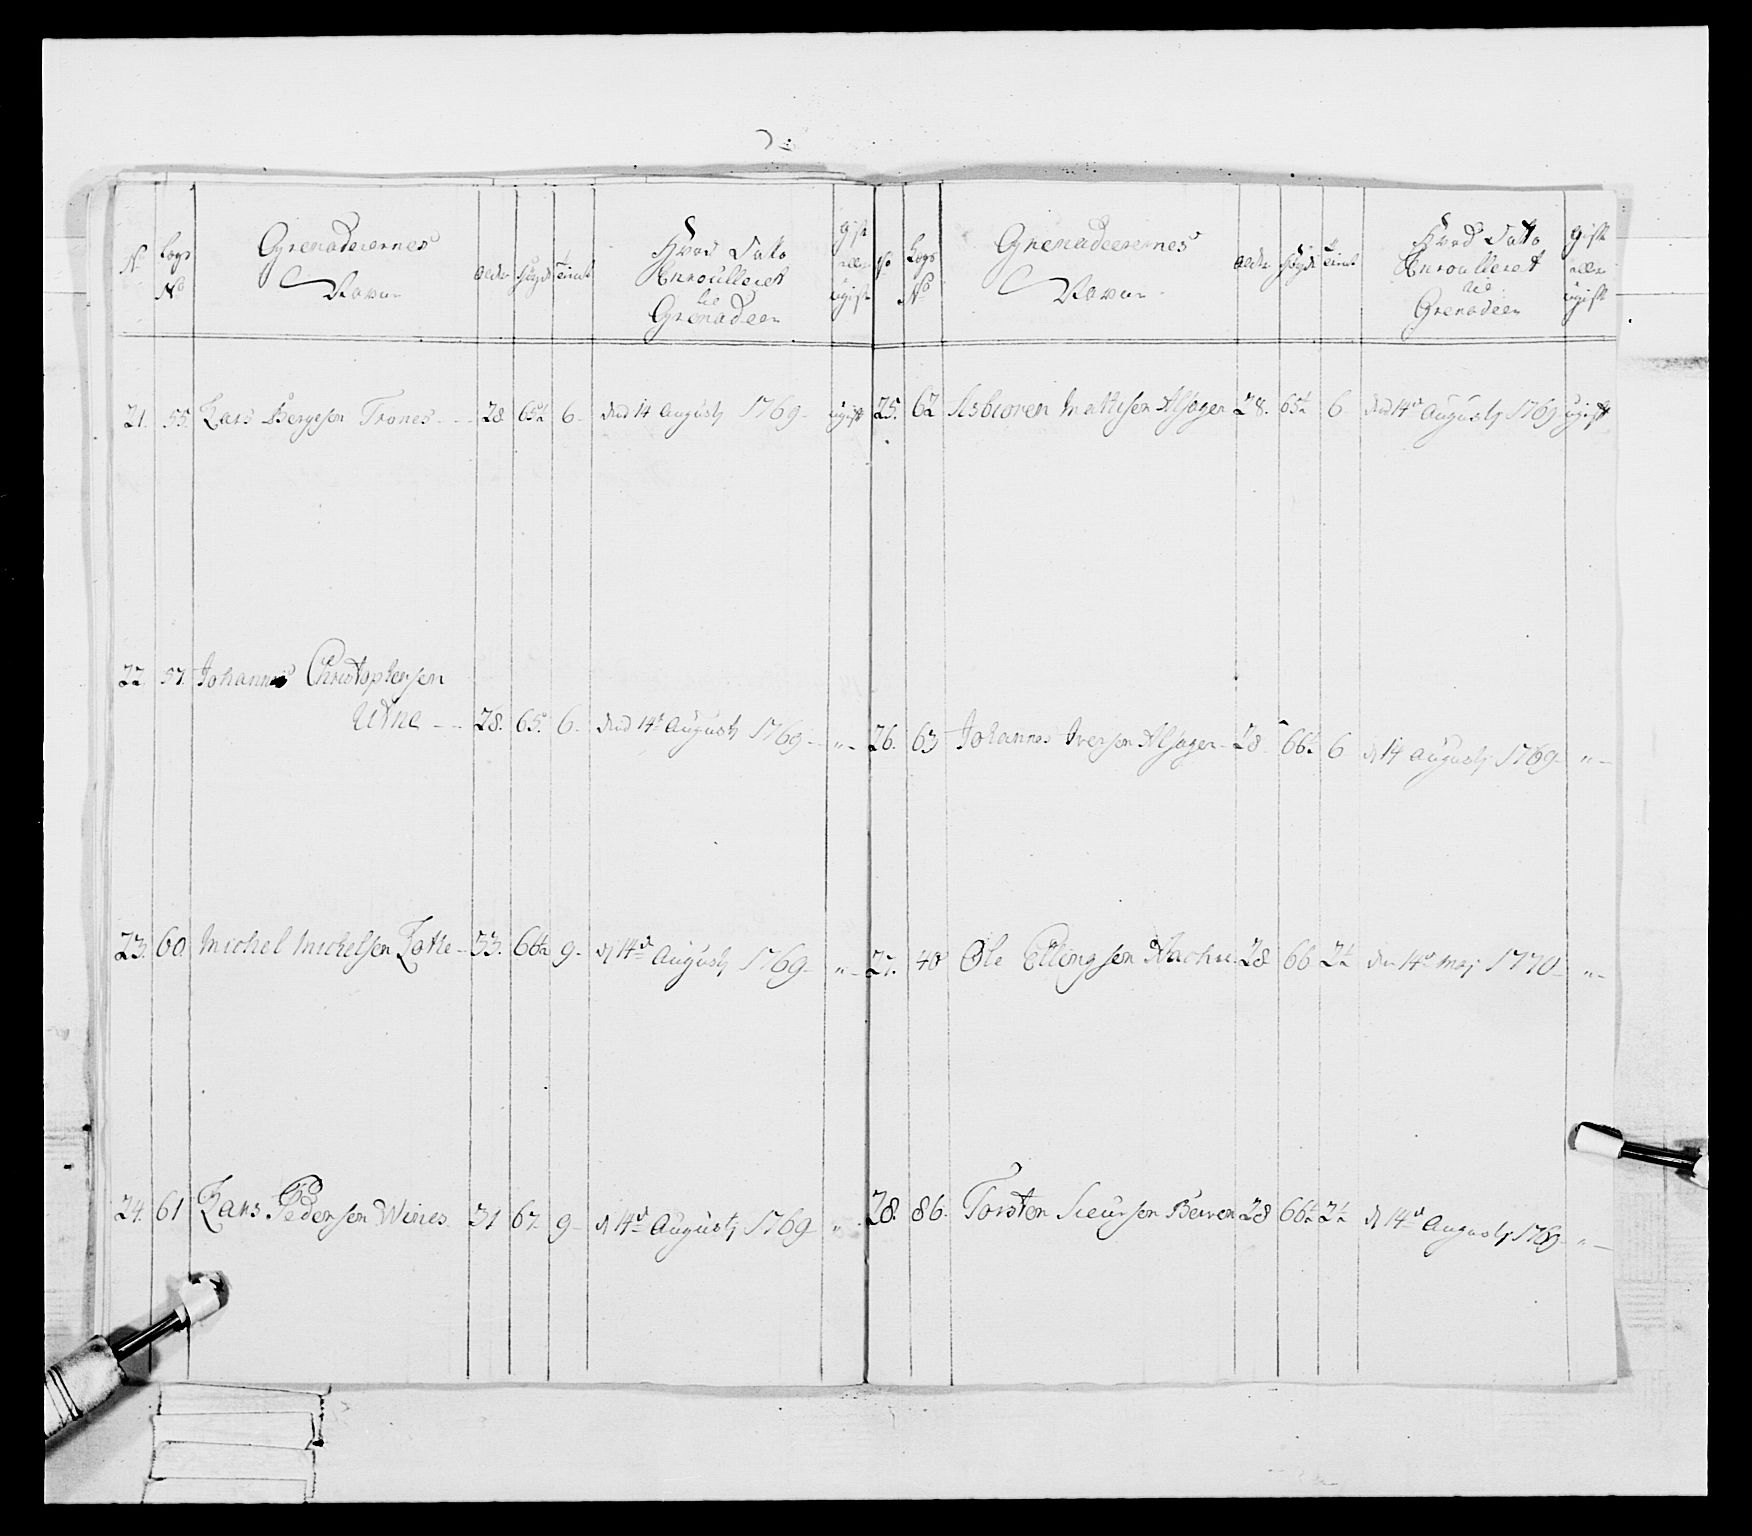 No
Logs No
Grenadeerernes Navne
Alder
Høyde
Tient
Hvad Dato Enroulleret til Grenadeer
Gift eller ugift
21. 55. Lars Bergeson Trones 28 65½ 6 dend 14 Augusty 1769 ugift
22. 57. Johannes Christophersen
Utne 28. 65. 6 dend 14d Augusty 1769 "
23. 60 Michel Mickelsen Lothe 33. 66½ 9 d 14de Augusty 1769 "
24. 61 Lars Pedersen Wines 31 67. 9 d 14de Augusty 1769 "
No
Logs No
Grenadeerernes Navne
Alder
Høyde
Tient
Hvad Dato Enroulleret til Grenadeer
Gift eller ugift
25. 62 Asbiøren Mathisen Alsager 28. 65½ 6 dend 14de Augusty 1769 ugift
26. 63 Johannes Iversen Alsager 28 66½ 6 d 14 Augusty 1769 "
27. 48 Ole Ellingsen 28 66 2½ den 14de Maj 1770 "
28. 86. Torsten Sieursen 28 66½ 2½ d 14de Augusty 1769 "